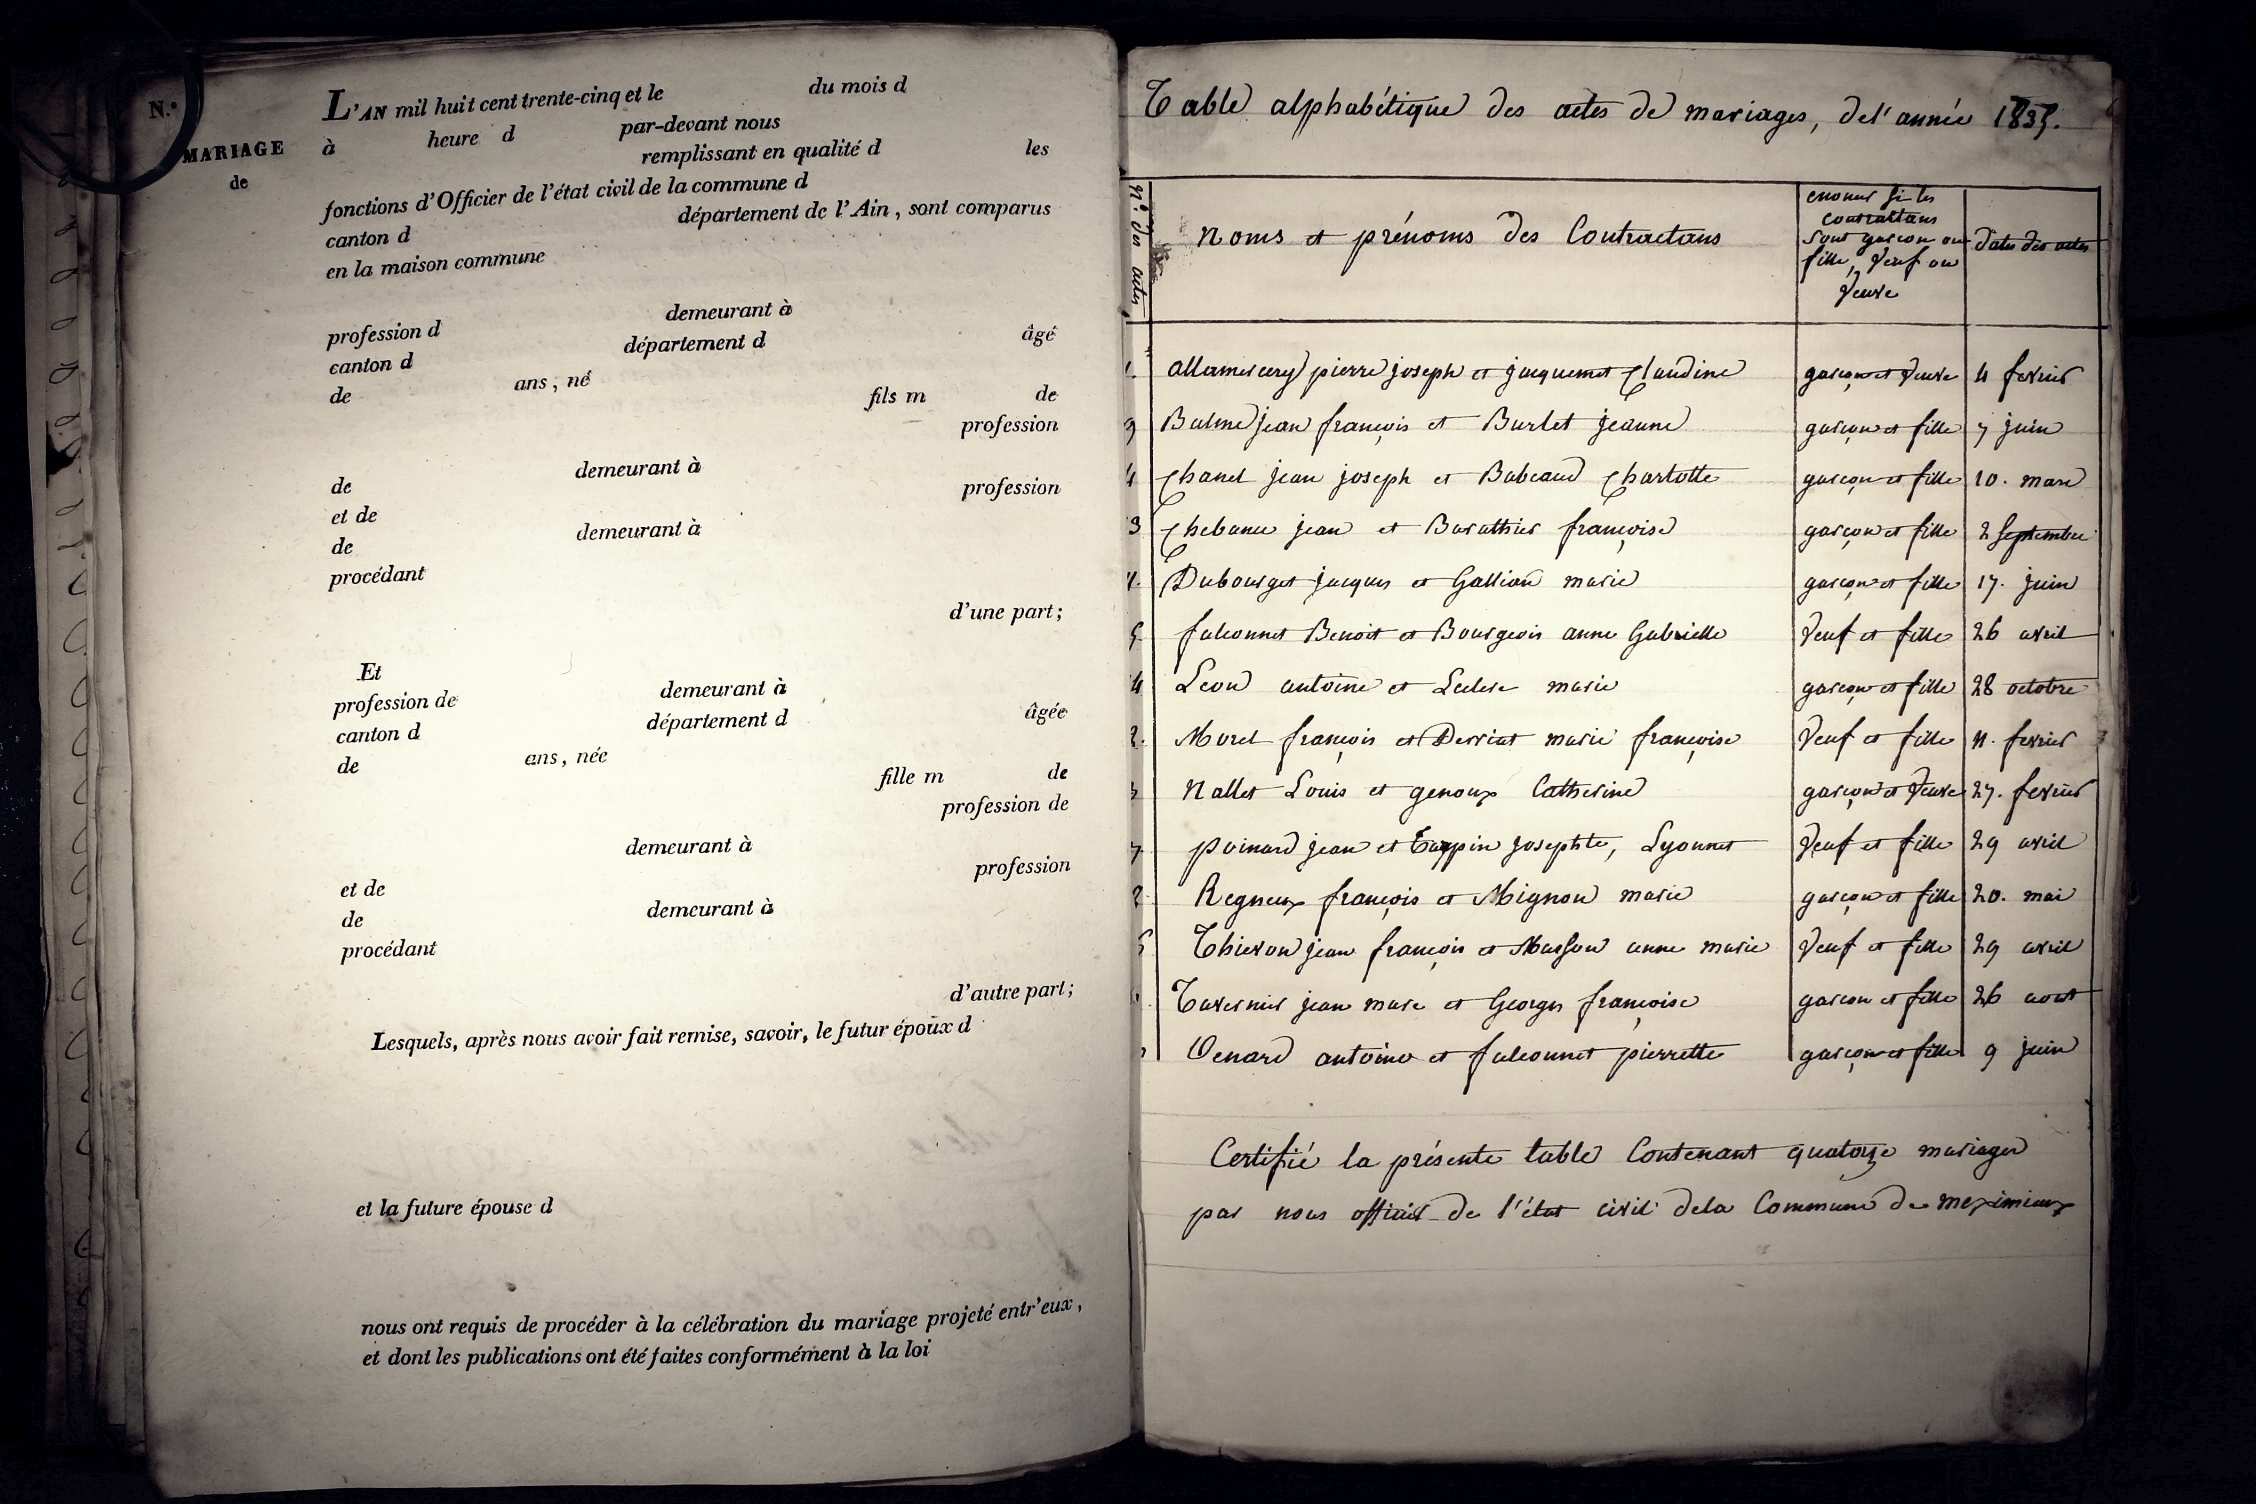 N.°
MARIAGE
de
L'AN mil huit cent trente-cinq et le du mois d
à heure d par-devant nous
remplissant en qualité d les
fonctions d'Officier de l'état civil de la commune d
canton d département de l'Ain, sont comparus
en la maison commune
profession d demeurant à
canton d département d âgé
de ans, né
fils m de
profession
de demeurant à
et de profession
de demeurant à
procédant
d'une part;
Et
profession de demeurant à
canton d département d âgée
de ans, née
fille m de
profession de
demeurant à
et de profession
de demeurant à
procédant
d'autre part;
Lesquels, après nous avoir fait remise, savoir, le futur époux d
et la future épouse d
nous ont requis de procéder à la célébration du mariage projeté entr'eux,
et dont les publications ont été faites conformément à la loi
Table alphabétique des actes de mariages, de l'année 1835.
N.° des actes
Noms et prénoms des Contractans
si les
contractans
sont garçon ou
fille, Veuf ou
Veuve
dates des actes
pierre joseph et jacquemet Claudine garçon et Veuve 4 fevrier
9 Balme jean françois et Burlet jeanne garçon et fille 7 juin
4 Chanel jean joseph et Babeaud Charlotte garçon et fille 10. mars
3 jean et Barathier françoise garçon et fille 2 Septembre
Dubourget jacques et Gallian marie garçon et fille 17. juin
5 falconnet Benoit et Bourgeois anne Gabrielle Veuf et fille 26 avril
4 Leon antoine et marie garçon et fille 28 octobre
2. Morel françois et Derriat marie françoise Veuf et fille 11. fevrier
3 Nallet Louis et genoux Catherine garçon et Veuve 27. fevrier
7 poinard jean et josephte, Lyonnet Veuf et fille 29 avril
Regneux françois et Mignon marie garçon et fille 20. mai
Thievon jean françois et Masson anne marie Veuf et fille 29 avril
Tavernier jean marc et Georges françoise garçon et fille 26 aout
Venard antoine et falconnet pierrette garçon et fille 9 juin
Certifié la présente table Contenant quatorze mariages
par nous officier de l'état civil de la Commune de meximieux